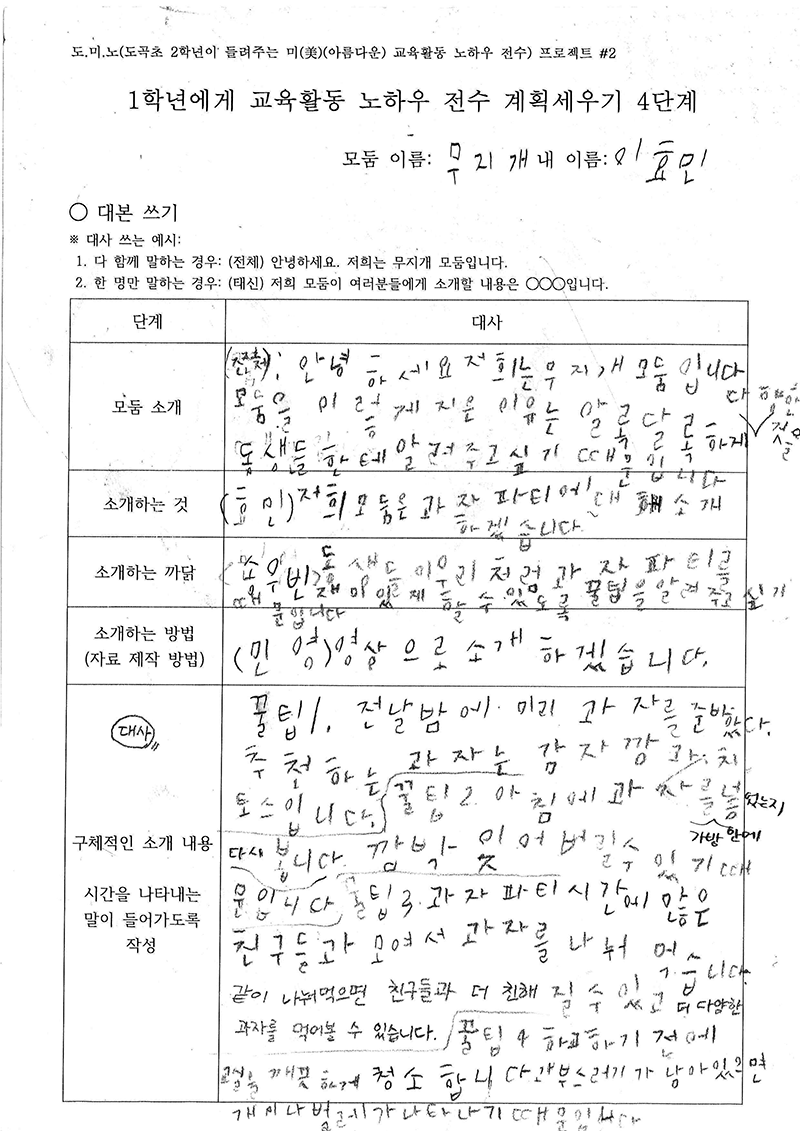 도.미.노(도곡초 2학년이 들려주는 미(美)(아름다운) 교육활동 노하우 전수) 프로젝트 #2
1학년에게 교육활동 노하우 전수 계획세우기 4단계
모둠 이름: 무지개 내 이름: 이효민
○ 대본 쓰기
※ 대사 쓰는 예시:
1. 다 함께 말하는 경우: (전체) 안녕하세요. 저희는 무지개 모둠입니다.
2. 한 명만 말하는 경우: (태신) 저희 모둠이 여러분들에게 소개할 내용은 ○○○입니다.
단계 대사
모둠 소개
(전체): 안녕하세요 저희는 무지개 모둠입니다
모둠을 이렇게 지은 이유는 알록달록하게
다양한 것을
동생들한테 알려주고 싶기 때문입니다
소개하는 것
(효민) 저희 모둠은 과자 파티에 대해 소개
하겠습니다.
소개하는 까닭
(우빈) 동생들이 우리처럼 과자 파티를
재미있게 할 수 있도록 꿀팁을 알려주고 싶기
때문입니다
소개하는 방법
(자료 제작 방법)
(민영) 영상으로 소개 하겠습니다.
대사
구체적인 소개 내용
시간을 나타내는
말이 들어가도록
작성
꿀팁1. 전날밤에 미리 과자를 준비한다.
추천하는 과자는 감자깡과 치
토스입니다. 꿀팁2. 아침에 과자를 넣었는지
가방 안에
다시 봅니다. 깜박 잊어버릴수 있기 때
문입니다 꿀팁3. 과자파티시간에 많은
친구들과 모여서 과자를 나눠 먹습니다.
같이 나눠먹으면 친구들과 더 친해 질 수 있고 더 다양한
과자를 먹어볼 수 있습니다. 꿀팁4 하교하기 전에
교실을 깨끗하게 청소합니다 과부스러기가 남아있으면
개미나 벌레가 나타나기 때문입니다